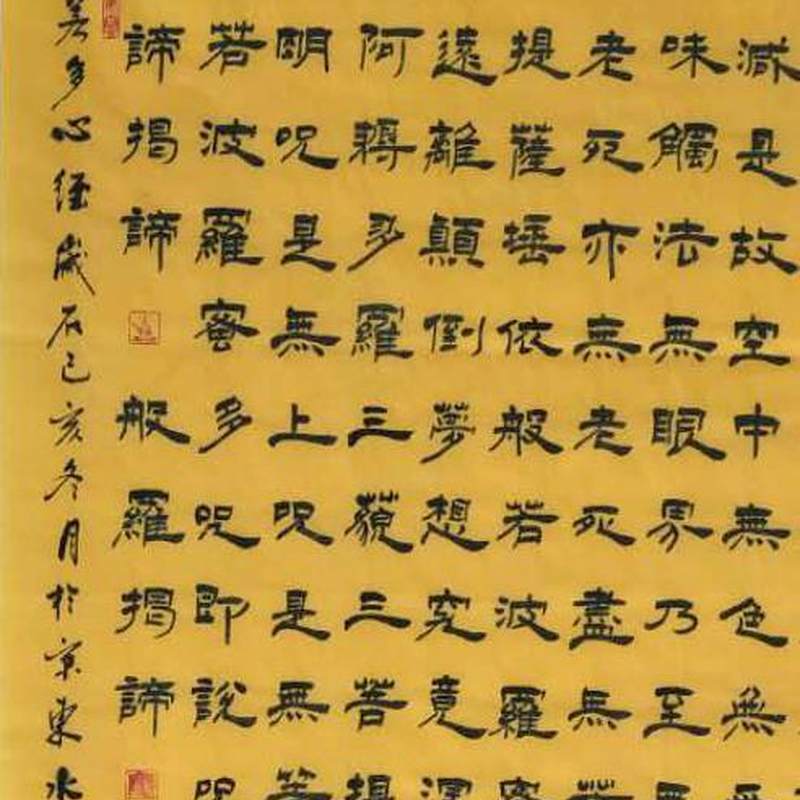 減是故空中無色無受
味觸法無眼界乃至無
老死亦無老死盡無苦
提薩埵依般若波羅蜜
遠離顛倒夢想究竟涅
阿耨多羅三藐三菩提
明呪是無上呪是無等
若波羅蜜多呪即說呪
諦揭諦 般羅揭諦
若多心經歲在己亥冬月於京東水